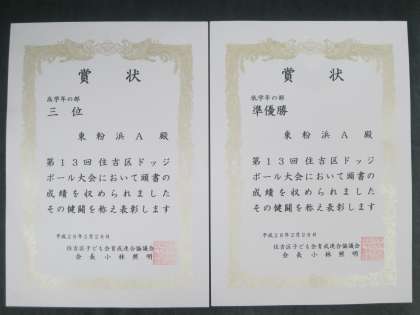 賞状
高学年の部
三位
東粉浜A殿
第13回住吉区ドッジ
ボール大会において頭書の
成績を収められました
その健闘を称え表彰します
平成28年2月28日
住吉区子ども会育成連合協議会
会長小林照明
賞状
低学年の部
準優勝
東粉浜A殿
第13回住吉区ドッジ
ボール大会において頭書の
成績を収められました
その健闘を称え表彰します
平成28年2月28日
住吉区子ども会育成連合協議会
会長小林照明